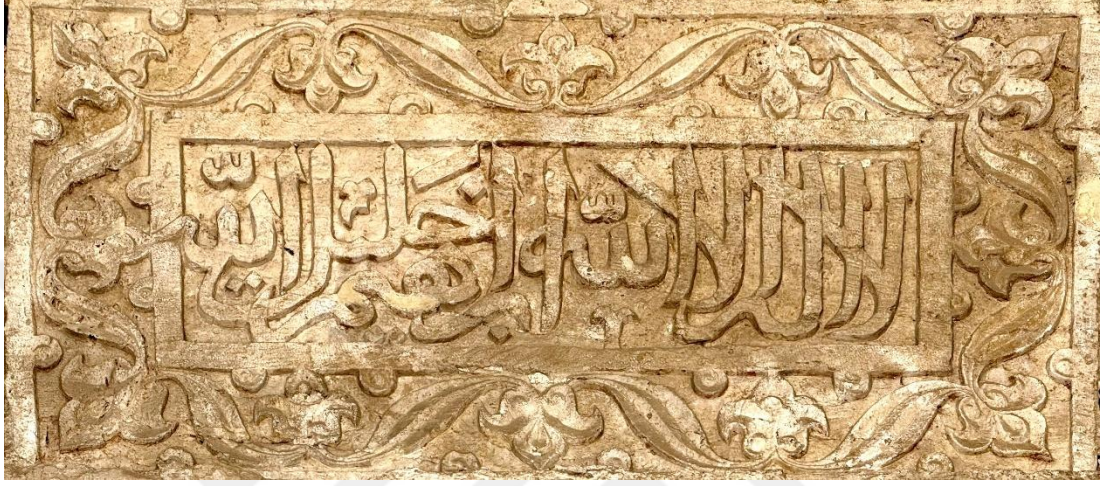 لا اله الا الله و ابرهيم خليل الله